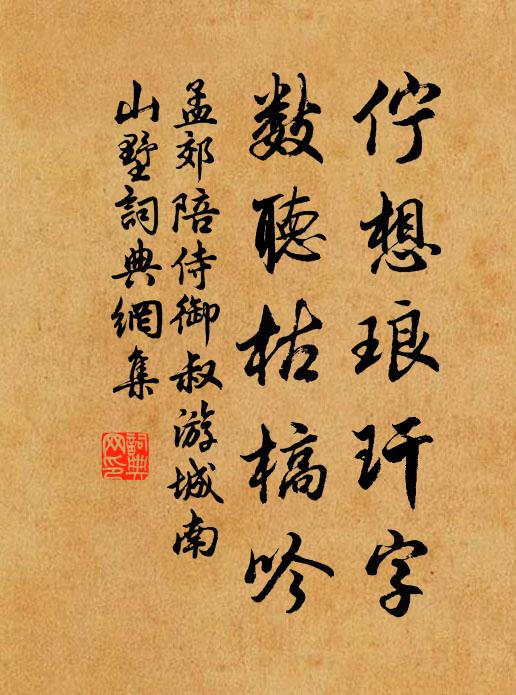 佇想琅玕字
數聽枯槁吟
孟郊陪侍御叔游城南
山墅詞典網集
詞典网印